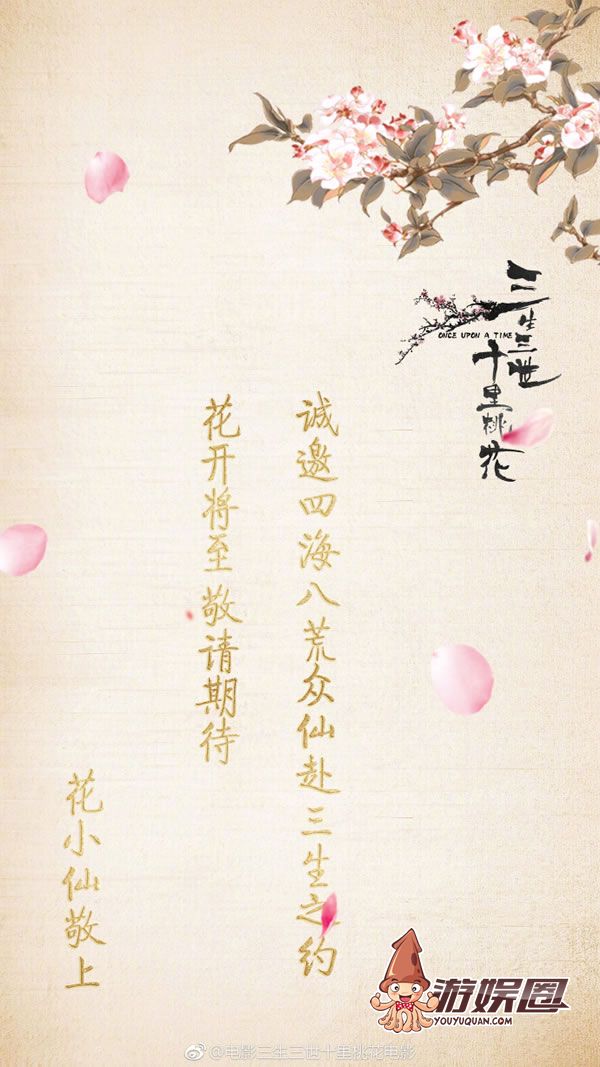 三生三世
十里桃花
ONCE UPON A TIME
诚邀四海八荒众仙赴三生之约
花开将至 敬请期待
花小仙敬上
游娱圈
YOUYUQUAN.COM
@电影三生三世十里桃花电影